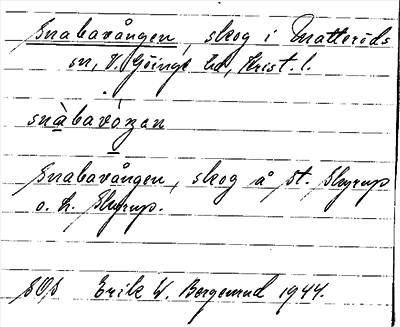 Snabavången, skog i Matteröds
sn, V. Göinge hd, Krist. l.
snàbavóŋan
Snabavången, skog å St. Slyrup
o. L. Slyrup.
SOS Erik W. Bergenrud 1944.